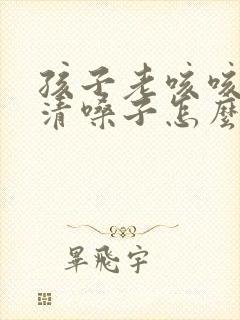 孩子老咳咳
清嗓子怎麼
畢飛宇